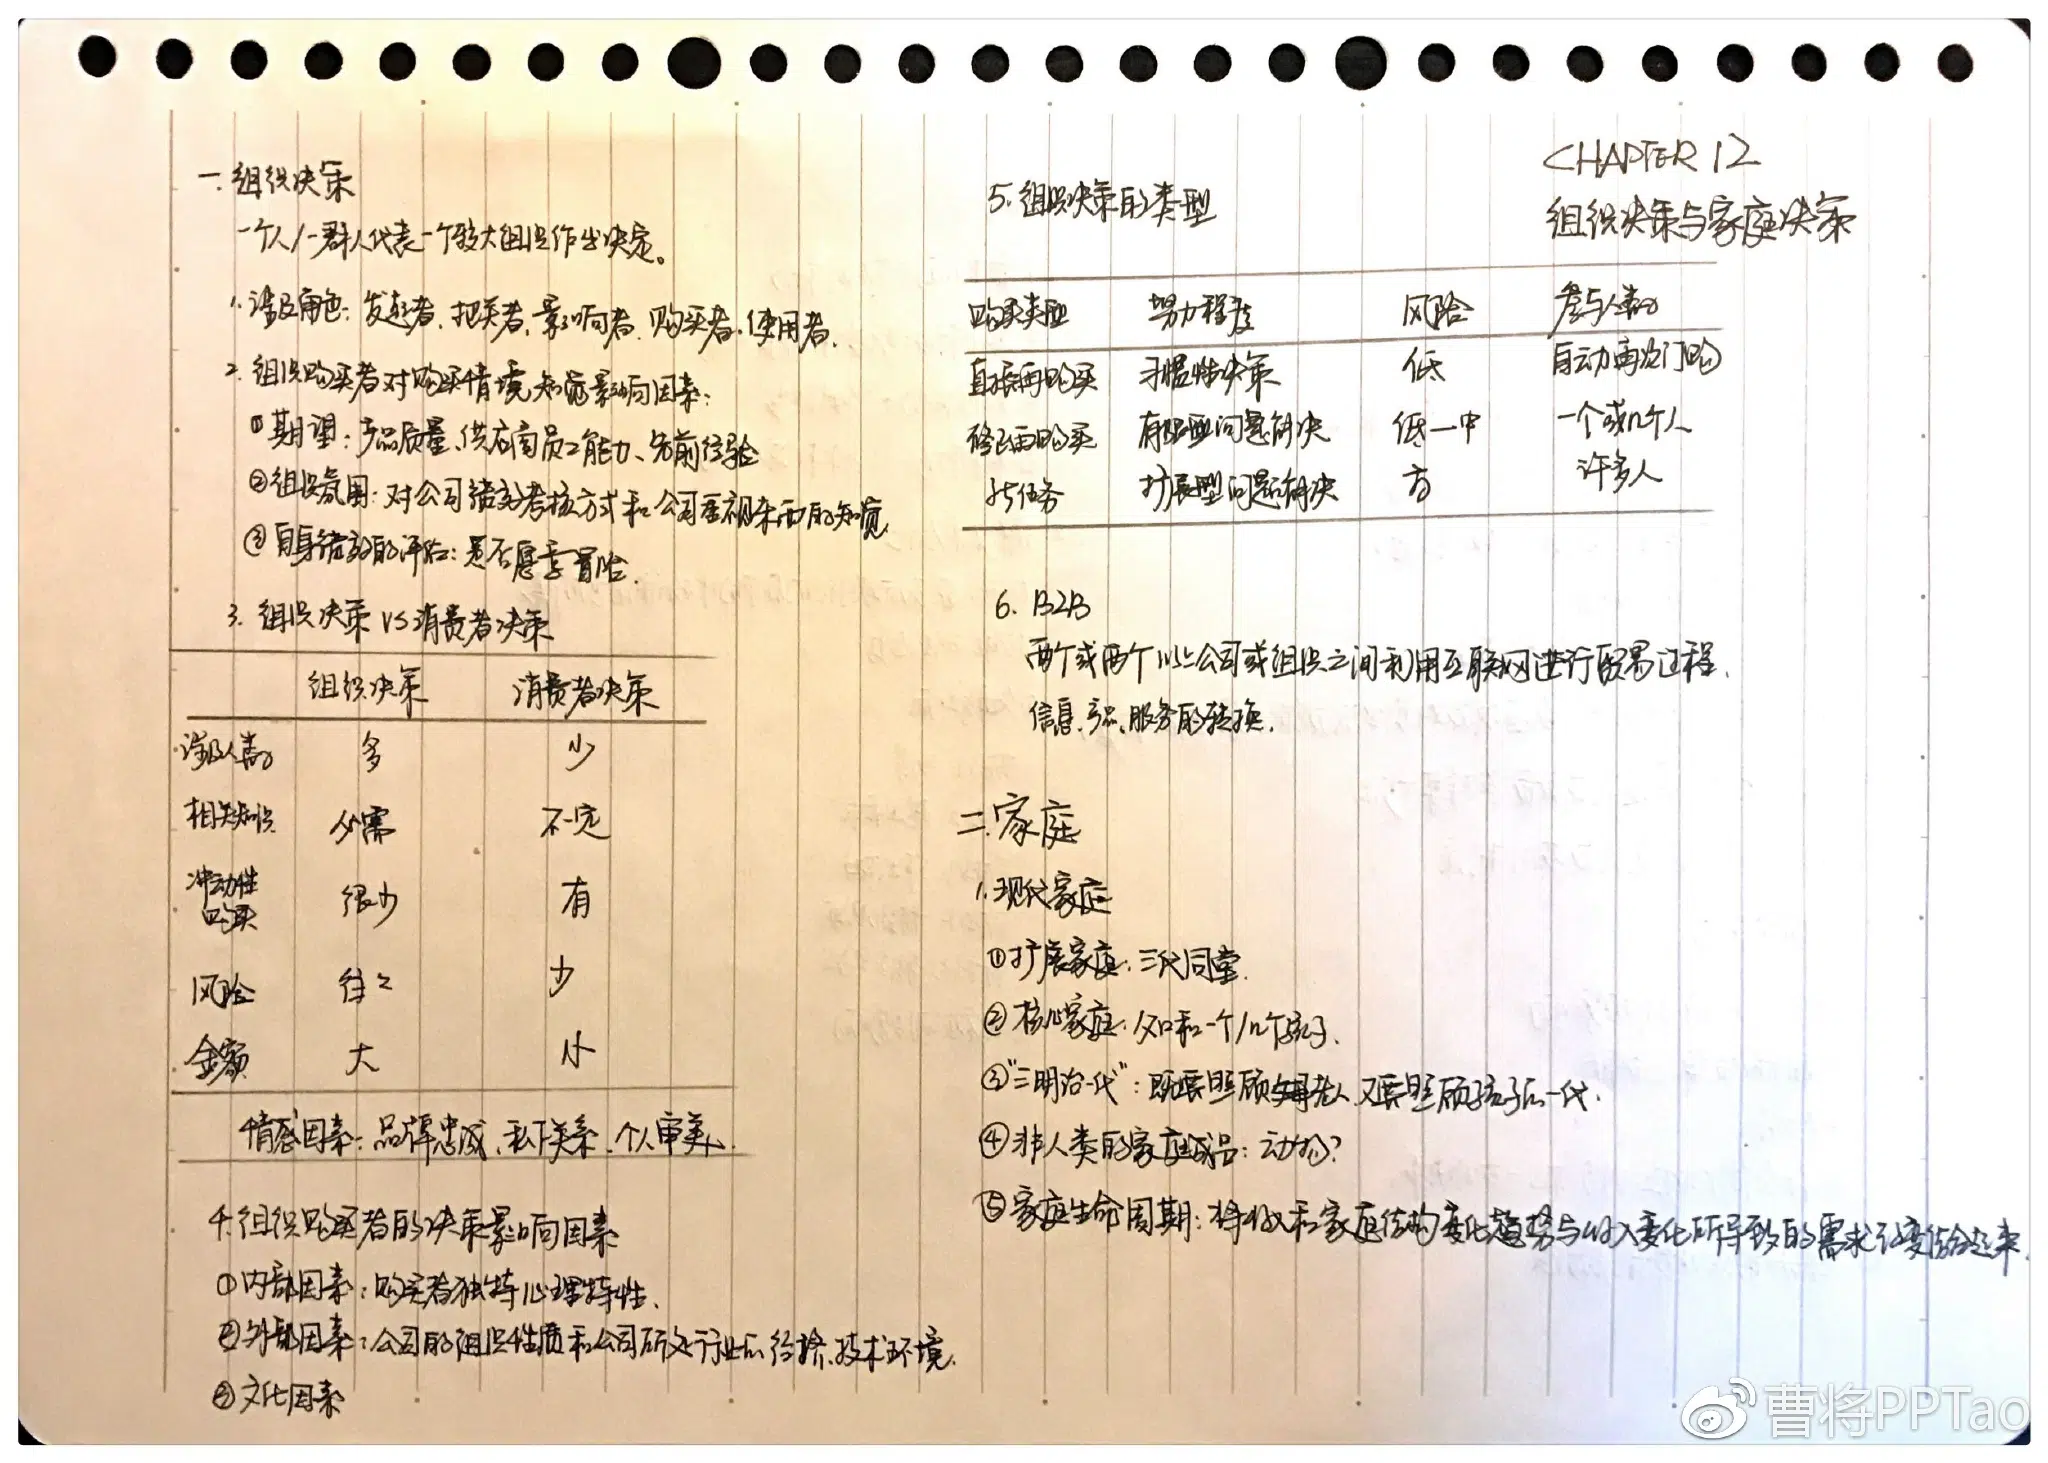 CHAPTER 12
组织决策与家庭决策
一.组织决策
一个人/一群人代表一个较大组织作出决定。
1.涉及角色:发起者、把关者、影响者、购买者、使用者.
2.组织购买者对购买情境知觉影响因素:
①期望:产品质量、供应商员工能力、先前经验
②组织氛围:对公司绩效考核方式和公司重视东西的知觉
③自身绩效的评估:是否愿意冒险.
3.组织决策 VS 消费者决策
组织决策 消费者决策
涉及人数 多 少
相关知识 必需 不一定
冲动性购买 很少 有
风险 往々 少
金额 大 小
情感因素:品牌忠诚、私下关系、个人审美.
4.组织购买者的决策影响因素
①内部因素:购买者独特心理特性.
②外部因素:公司的组织性质和公司所处行业的经济、技术环境.
③文化因素
5.组织决策的类型
购买类型 努力程度 风险 参与人数
直接再购买 习惯性决策 低 自动再次订购
修正再购买 有限型问题解决 低一中 一个或几个人
新任务 扩展型问题解决 高 许多人
6. B2B
两个或两个以上公司或组织之间利用互联网进行贸易过程.
信息、产品、服务的转换.
二.家庭
1.现代家庭
①扩展家庭:三代同堂.
②核心家庭:父母和一个/几个孩子.
③"三明治一代":既要照顾老人又要照顾孩子的一代.
④非人类的家庭成员:动物?
⑤家庭生命周期:将收入和家庭结构变化趋势与收入变化所导致的需求改变结合起来.
曹将PPTao